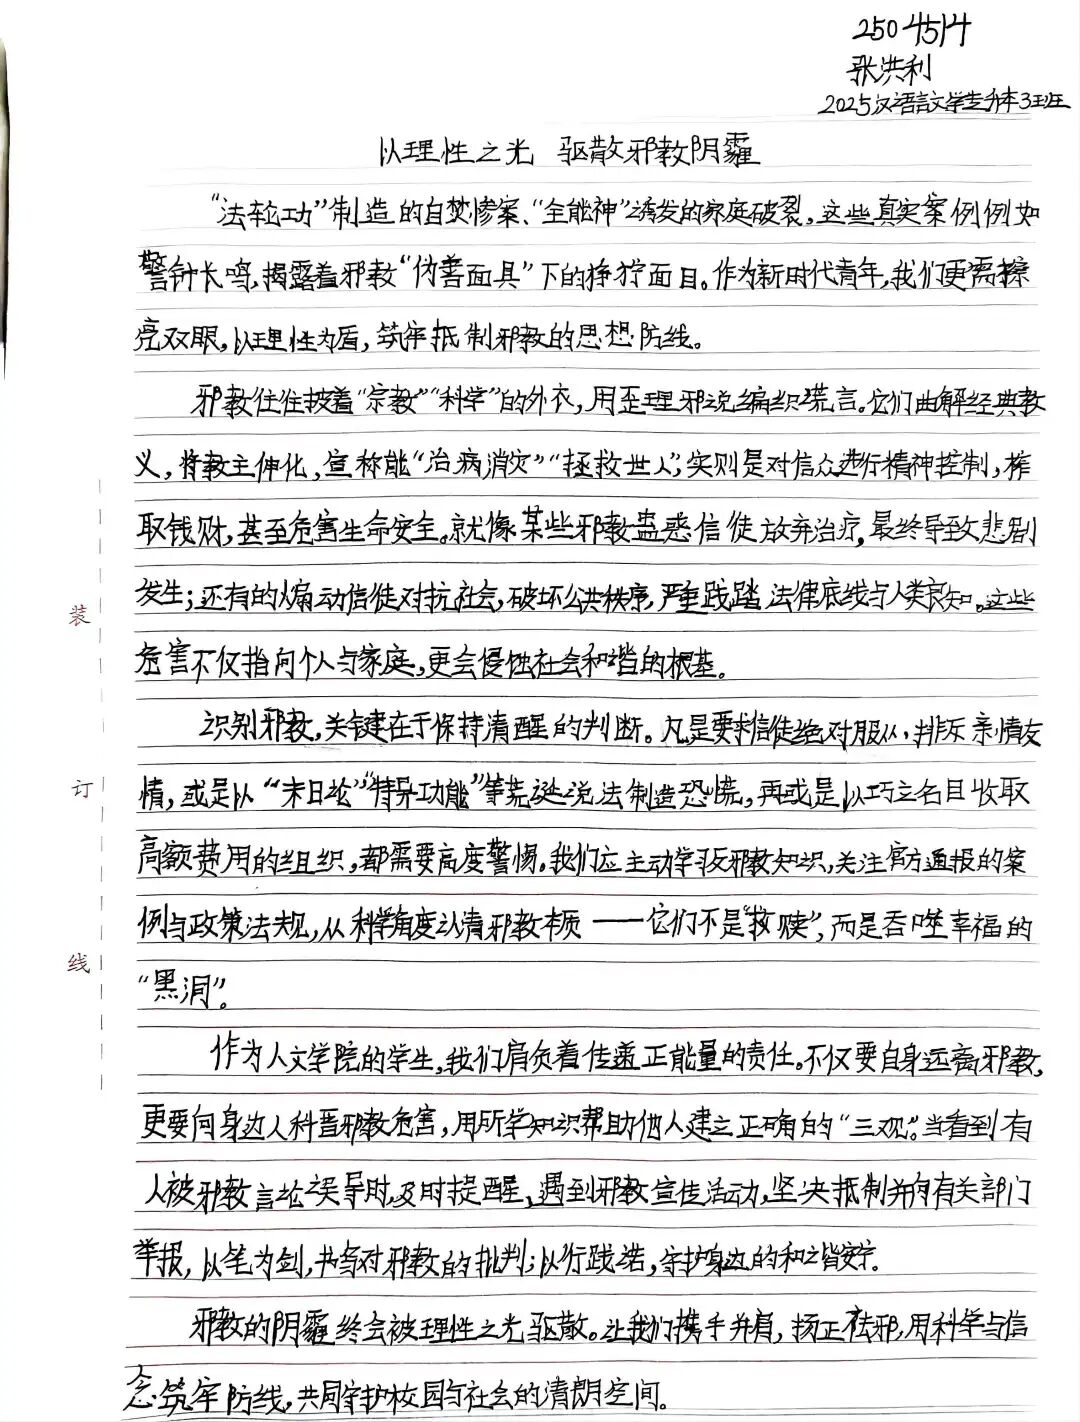 25045514
张洪利
2025汉语言文学专升本3班
以理性之光 驱散邪教阴霾
“法轮功”制造的自焚惨案、“全能神”诱发的家庭破裂，这些真实案例例如
警钟长鸣，揭露着邪教“伪善面具”下的狰狞面目。作为新时代青年，我们更需擦
亮双眼，以理性为盾，筑牢抵制邪教的思想防线。
邪教往往披着“宗教”“科学”的外衣，用歪理邪说编织谎言。它们曲解经典教
义，将教主神化，宣称能“治病消灾”“拯救世人”，实则是对信众进行精神控制，榨
取钱财，甚至危害生命安全。就像某些邪教蛊惑信徒放弃治疗，最终导致悲剧
发生；还有的煽动信徒对抗社会，破坏公共秩序，严重践踏法律底线与人类良知。这些
危害不仅指向个人与家庭，更会侵蚀社会和谐的根基。
识别邪教，关键在于保持清醒的判断。凡是要求信徒绝对服从、排斥亲情友
情，或是以“末日论”“特异功能”等荒诞说法制造恐慌，再或是以巧立名目收取
高额费用的组织，都需要高度警惕。我们应主动学习反邪教知识，关注官方通报的案
例与政策法规，从科学角度认清邪教本质——它们不是“救赎”，而是吞噬幸福的
“黑洞”。
作为人文学院的学生，我们肩负着传递正能量的责任。不仅要自身远离邪教，
更要向身边人科普邪教危害，用所学知识帮助他人建立正确的“三观”。当看到有
人被邪教言论误导时，及时提醒，遇到邪教宣传活动，坚决抵制并向有关部门
举报，以笔为剑，书写对邪教的批判；以行践诺，守护身边的和谐安宁。
邪教的阴霾终会被理性之光驱散。让我们携手并肩，扬正祛邪，用科学与信
念筑牢防线，共同守护校园与社会的清朗空间。
装
订
线